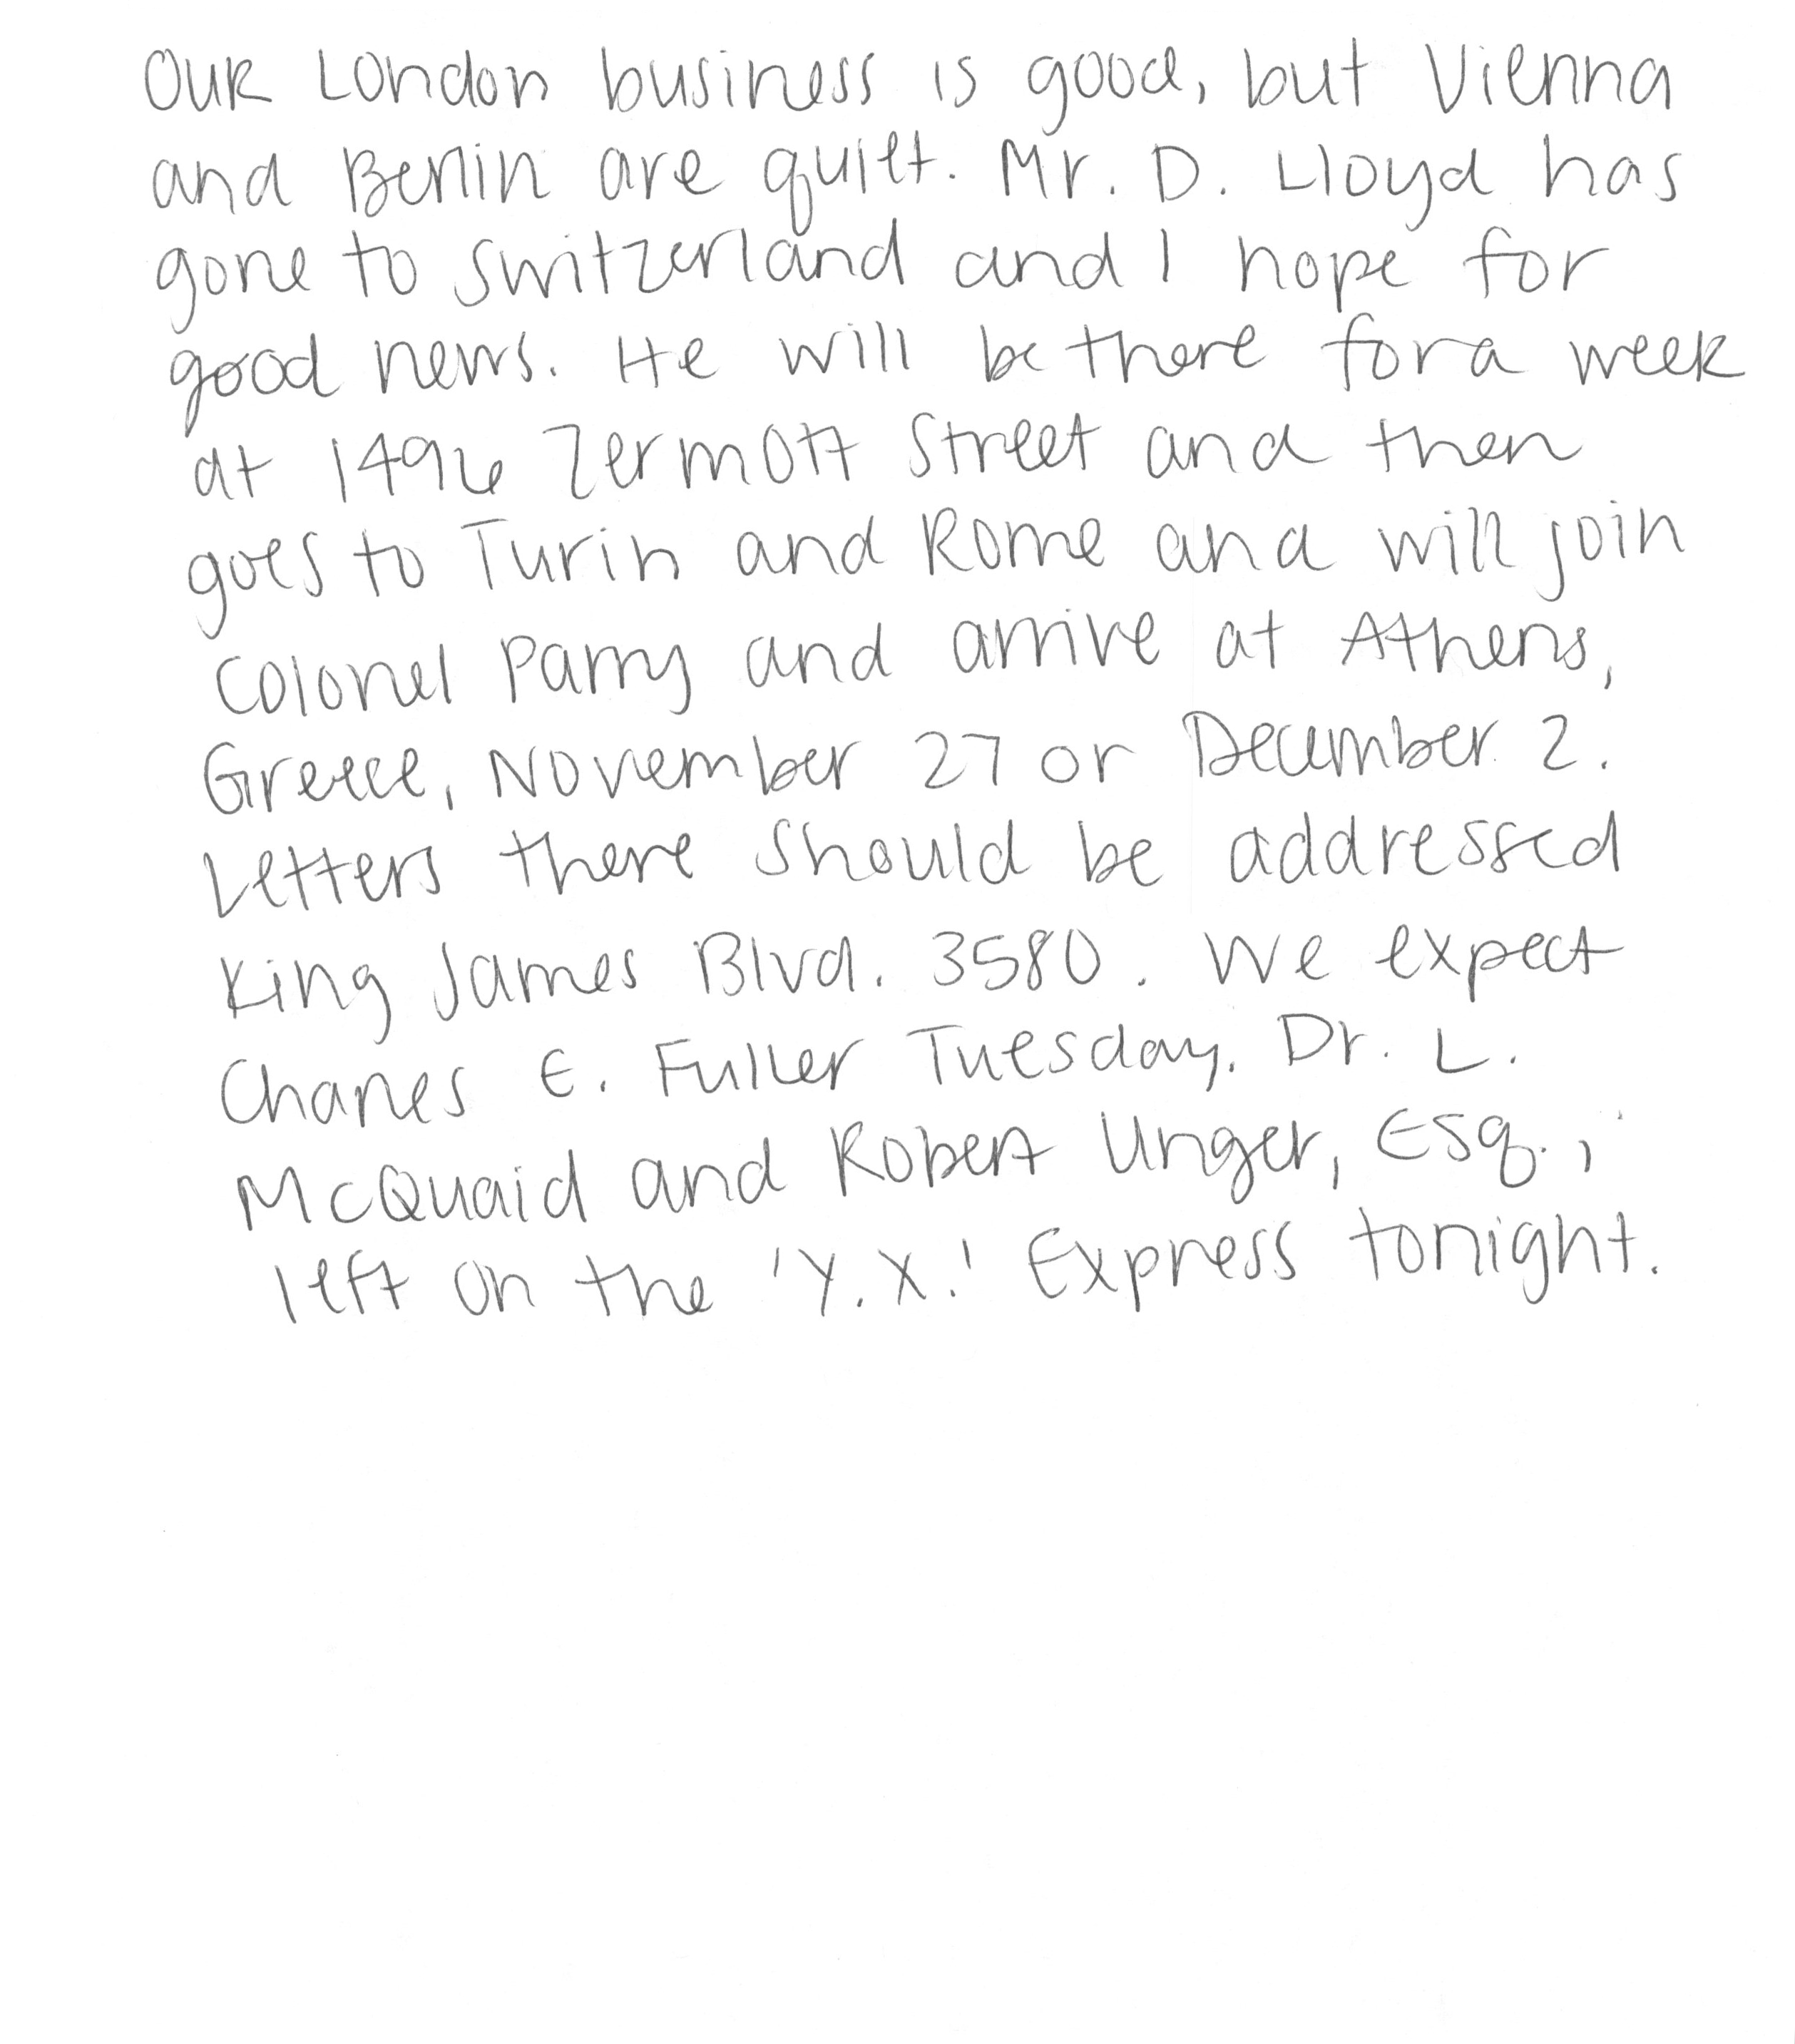 Our London business is good, but Vienna
and Berlin are quiet. Mr. D. Lloyd has
gone to Switzerland and I hope for
good news. He will be there for a week
at 1496 Zermott Street and then
goes to Turin and Rome and will join
Colonel Parry and arrive at Athens,
Greece, November 27 or December 2.
Letters there should be addressed
King James Blvd. 3580. We expect
Charles E. Fuller Tuesday. Dr. L.
McQuaid and Robert Unger, Esq.,
left on the 'Y.X.' Express tonight.